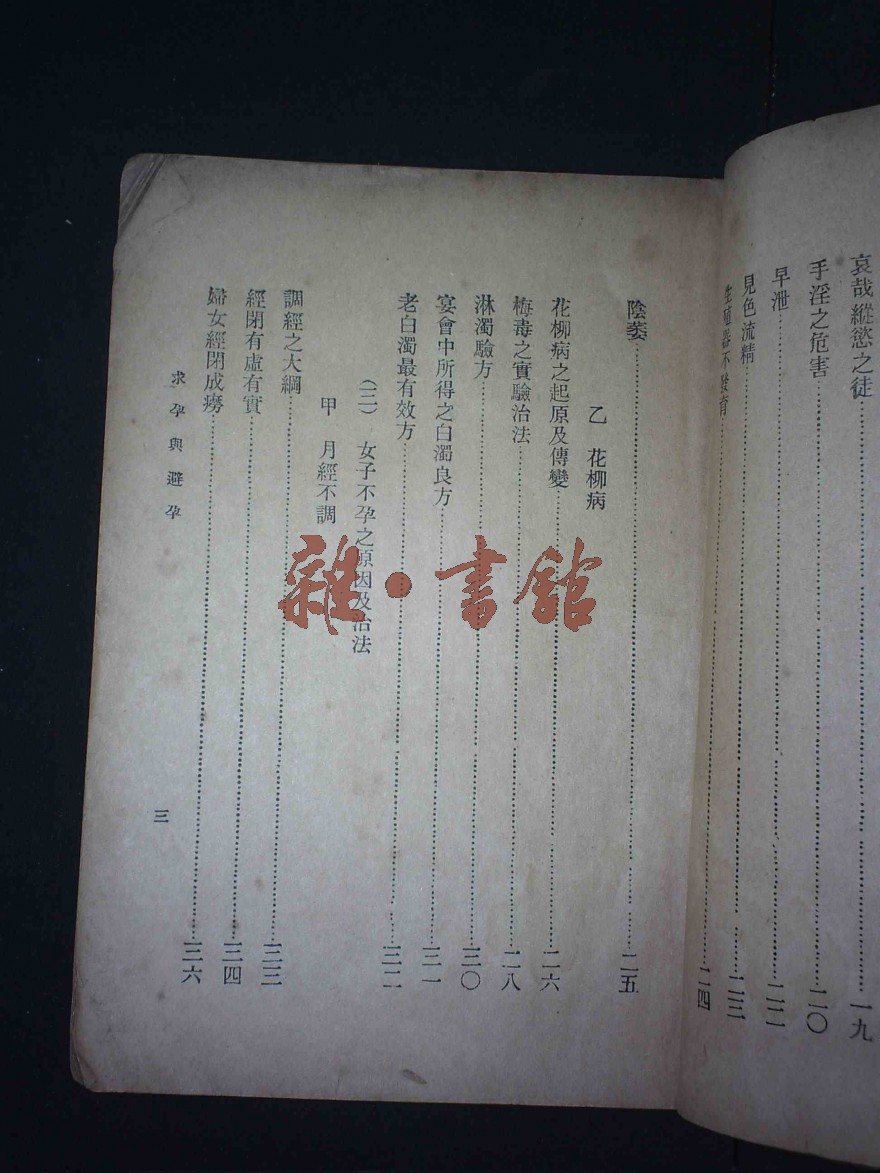 哀哉縱慾之徒……一九
手淫之危害……二〇
早泄……二二
見色流精……二三
生殖器不發育……二四
陰萎……二五
乙 花柳病
花柳病之起原及傳變……二六
梅毒之實驗治法……二八
淋濁驗方……三〇
宴會中所得之白濁良方……三一
老白濁最有效方……三二
(三) 女子不孕之原因及治法
甲 月經不調
調經之大綱……三三
經閉有虛有實……三四
婦女經閉成癆……三六
求孕與避孕
三
雜·書館